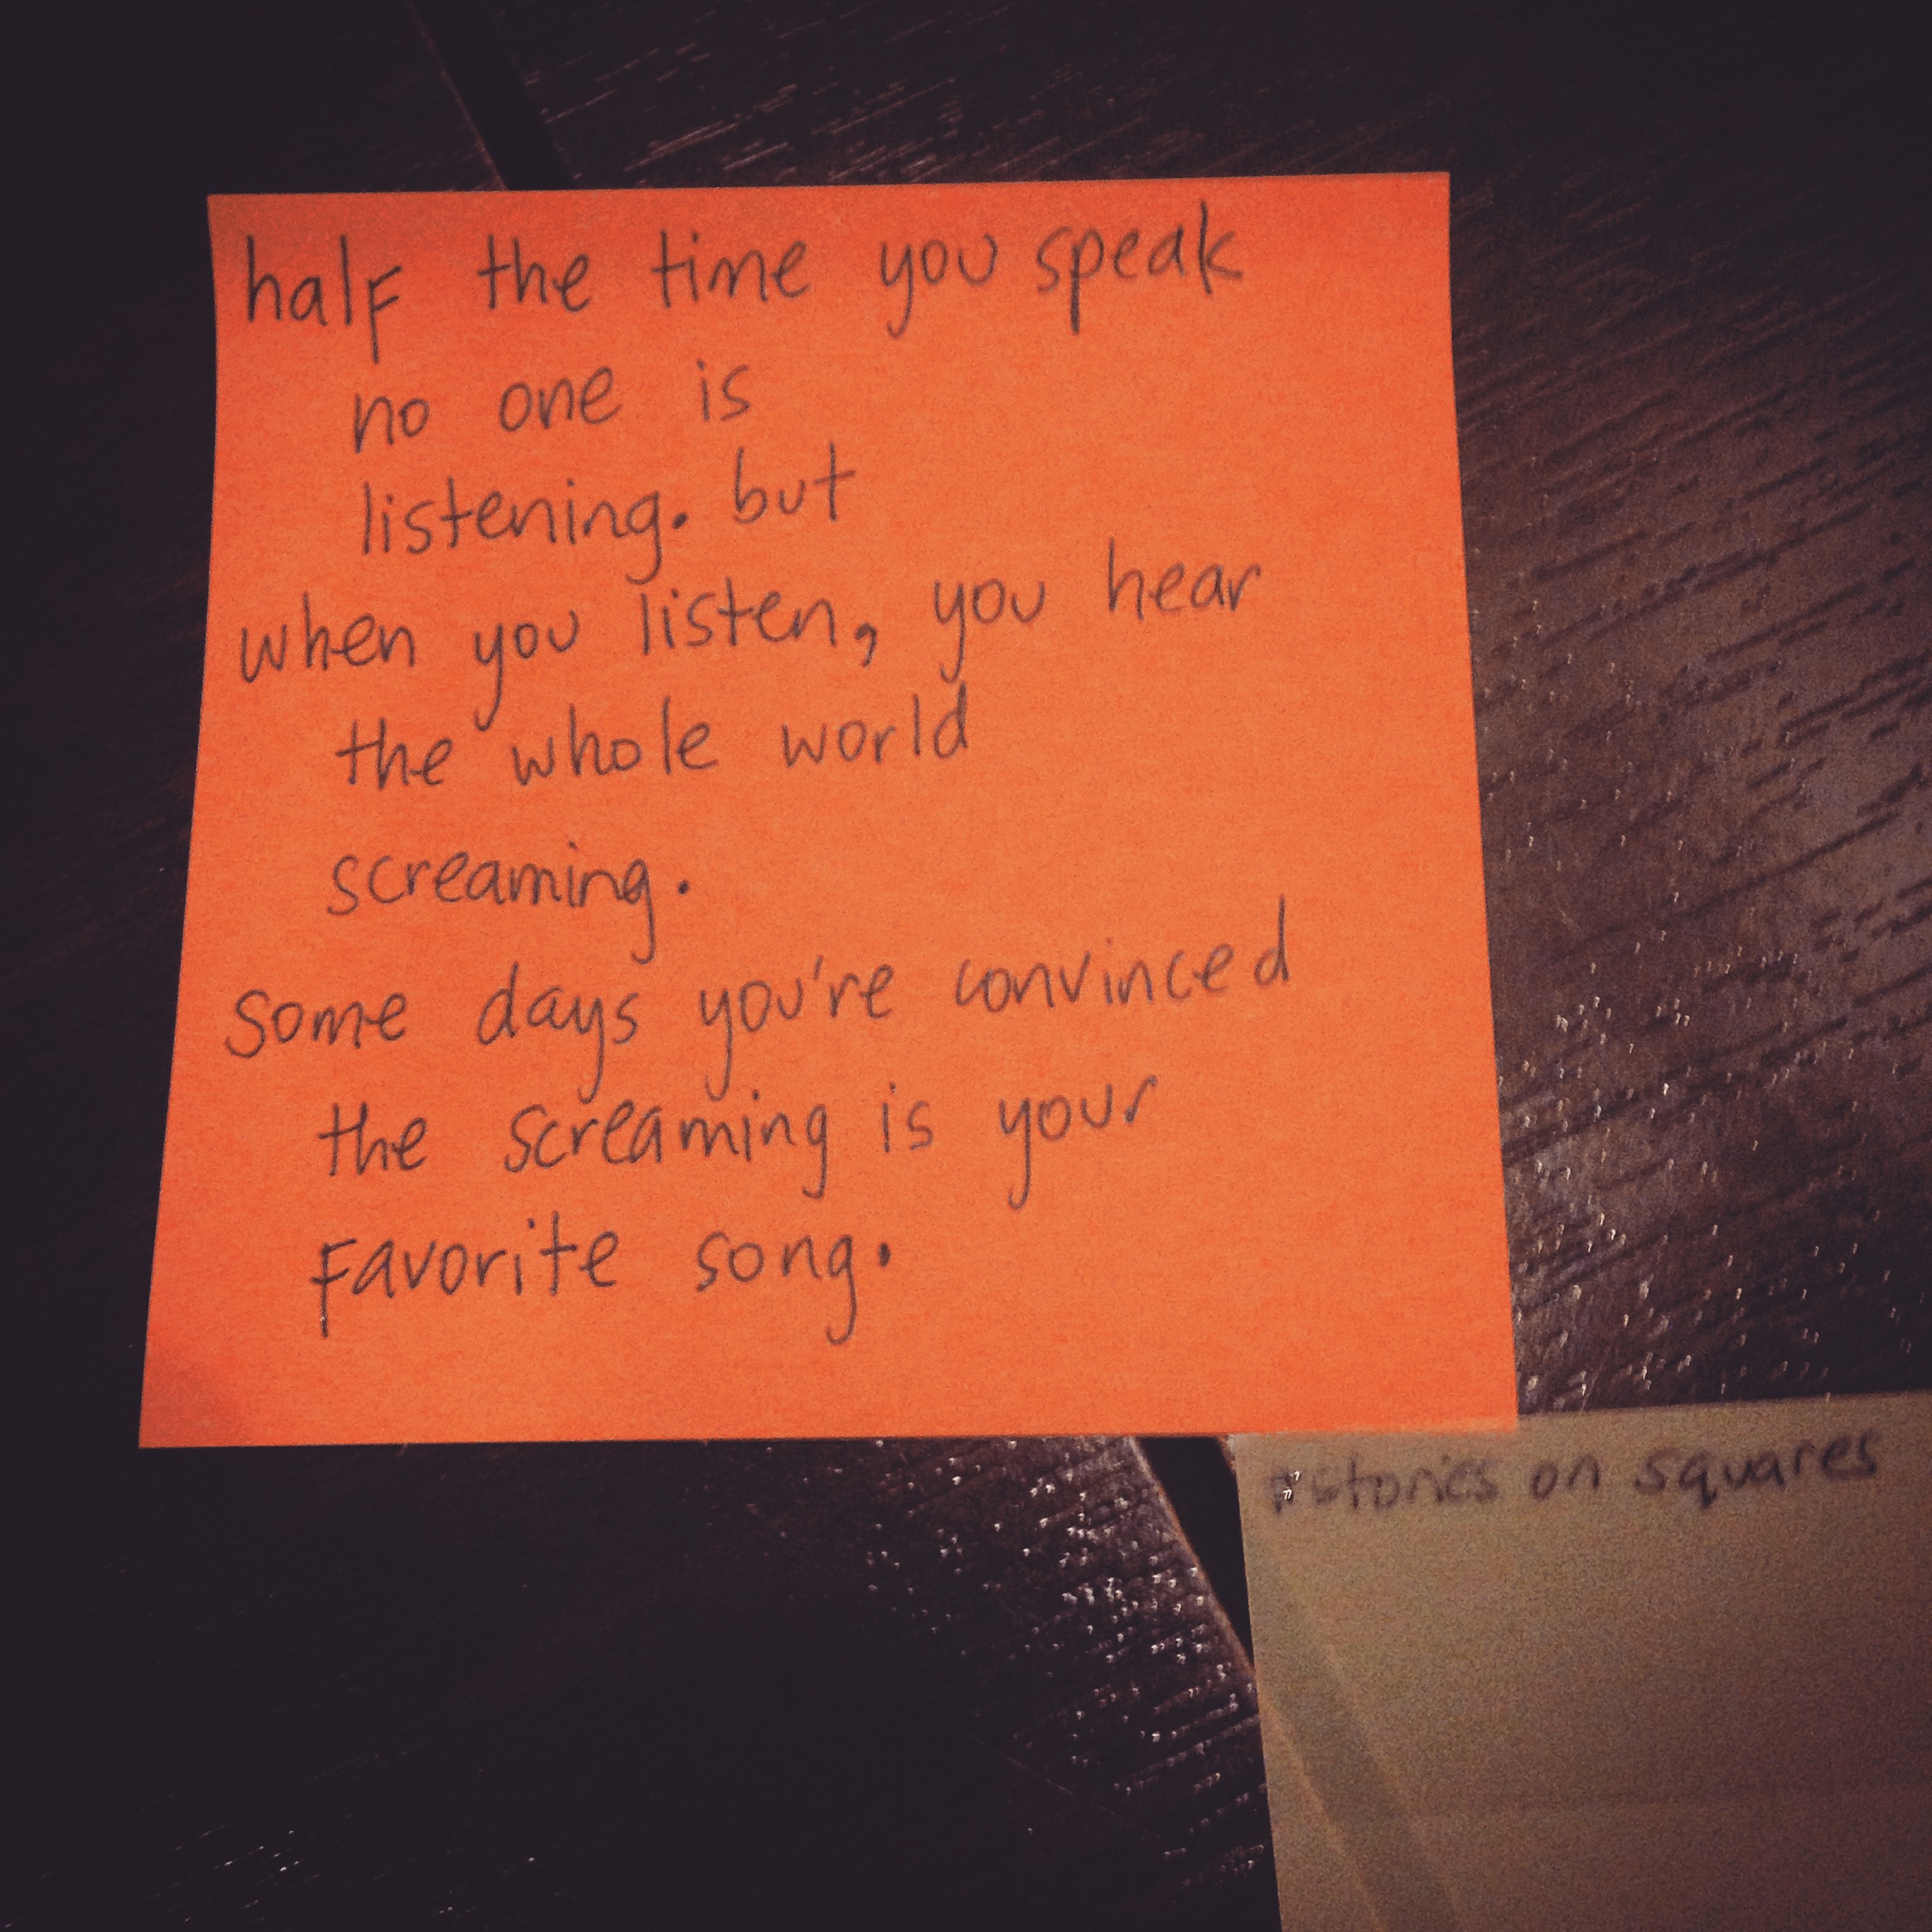 half the time you speak
no one is
listening. but
when you listen, you hear
the whole world
screaming.
some days you're convinced
the screaming is your
favorite song.
#stories on squares